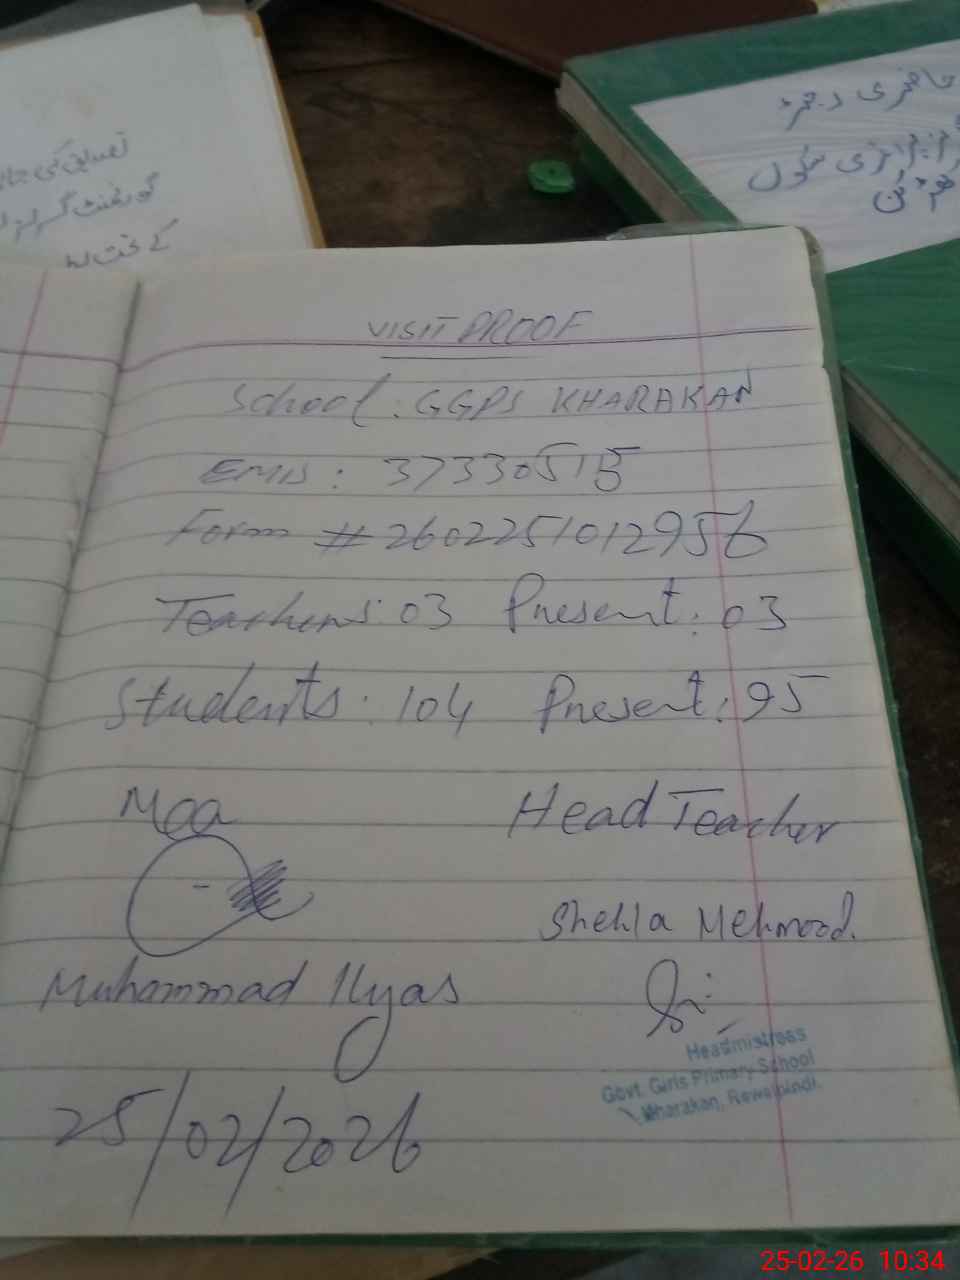 تصدیق کی جا
گورنمنٹ گرلز
کے تحت
حاضری رجسٹر
پرائمری سکول
VISIT PROOF
School: GGPS KHARAKAN
EMIS: 37330515
Form # 2602251012956
Teachers: 03 Present: 03
Students: 104 Present: 95
Mea Head Teacher
Shehla Mehmood.
Muhammad Ilyas
Headmistress
Govt. Girls Primary School
Kharakan, Rawalpindi.
25/02/2026
25-02-26 10:34